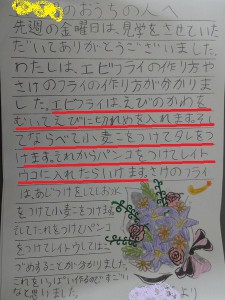 のおうちの人へ
先週の金曜日は、見学をさせていた
だいてありがとうございました。
わたしは、エビフライの作り方や
さけのフライの作り方が分かりま
した。エビフライは、えびのかわを
むいてえびに切れめを入れます。そし
てならべて小麦こをつけてタレをつ
けます。それからパンコをつけてレイト
ウコに入れたらいけます。さけのフライ
は、あじつけをしてしお水
をつけて小麦こをつけま
してたれをつけてパンコ
をつけてレイトウしては
づめすることが分かりました。
これをいっぱい作るのですごい
なと思いました。
より